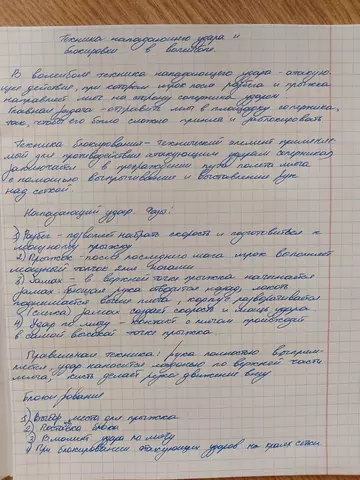 Техника нападающего удара и
блокировки в волейболе.
В волейболе техника нападающего удара - атакую-
щее действие, при котором игрок после разбега и прыжка
направляет мяч на сторону соперника ударом
Главная задача - отправить мяч в площадку соперника,
так, чтобы его было сложно принять и заблокировать
Техника блокирования - технический элемент применяе-
мый для противодействия атакующим ударам соперника
Заключается в преграждении пути полета мяча
с помощью выпрыгивания и выставления рук
над сеткой.
Нападающий удар. Фазы:
1) Разбег - позволяет набрать скорость и подготовиться к
мощному прыжку
2) Прыжок - после последнего шага игрок выполняет
мощный толчок двумя ногами
3) Замах - в верхней точке прыжка начинается
замах. Бьющая рука отводится назад, локоть
поднимается выше плеча, корпус разворачивается
(слегка) Замах создает скорость и мощь удара
4) Удар по мячу - контакт с мячом происходит
в самой высокой точке прыжка.
Правильная техника: рука полностью выпрям-
ляется, удар наносится ладонью по верхней части
мяча, кисть делает резкое движение вниз
Блокирование
1) Выбор места для прыжка
2) Постановка блока
3) В момент удара по мячу
4) При блокировании атакующих ударов на краю сетки